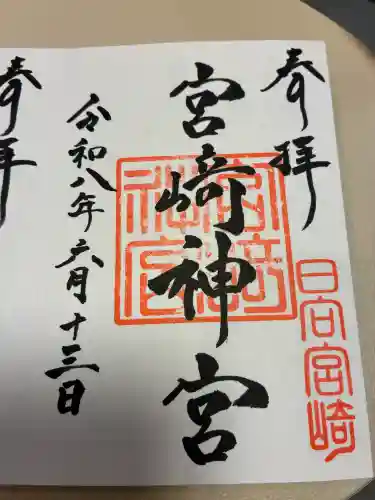 奉拝
日向宮崎
宮﨑神宮
宮崎神宮
令和八年六月十三日
奉拝